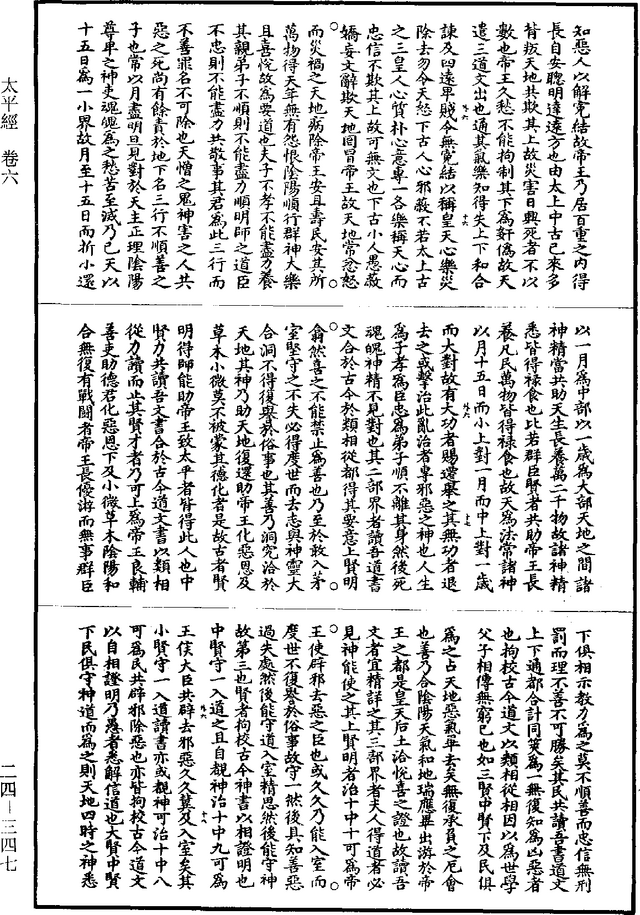 知惡人以解冤結故帝王乃居百重之內得
長自安聰明達遠方也由太上中古已來多
背叛天地共欺其上故災害日興死者不以
數也帝王久愁不能拘制其下爲奸僞故天
遣三道文出也通其氣樂知得失上下和合
諫及四遠草賤令無冤結以稱皇天心樂災
除去勿令天怒下古人心邪蔽不若太上古
之三皇人心質朴心意專一各樂稱天心而
忠信不欺其上故可無文也下古小人愚蔽
矯妄文辭欺天地罔冒帝王故天地常忿怒
而災禍之天地病除帝王安且壽民安其所
萬物得天年無有怨恨陰陽順行群神大樂
且喜悅故爲要道也夫子不孝不能盡力養
其親弟子不順則不能盡力順明師之道臣
不忠則不能盡力共敬事其君爲此三行而
不善罪名不可除也天憎之鬼神害之人共
惡之死尚有餘責於地下名三行不順善之
子也常以月盡朔旦見對於天主正理陰陽
尊卑之神吏魂魄爲之愁苦至滅乃已天以
十五日爲一小界故月至十五日而折小還
以一月爲中部以一歲爲大部天地之間諸
神精當共助天生長養萬二千物故諸神精
悉皆得祿食也比若群臣賢者共助帝王長
養凡民萬物皆得祿食也故天爲法常諸神
以月十五日而小上對一月而中上對一歲
而大對故有大功者賜遷舉之其無功者退
去之或擊治此亂治者專邪惡之神也人生
爲子孝爲臣忠爲弟子順不離其身然後死
魂魄神精不見對也其二部界者讀吾道書
文合於古今於類相從都得其要意上賢明
翕然喜之不能禁止爲善也乃至於敢入茅
室堅守之不失必得度世而去志與神靈大
合洞不得復譽於俗事也其善乃洞究洽於
天地其神乃助天地復還助帝王化惡恩及
草木小微莫不被蒙其德化者是故古者賢
明得師能助帝王致太平者皆得此人也中
賢力共讀吾文書合於古今道文書以類相
從力讀而止其賢才者乃可上爲帝王良輔
善吏助德君化惡恩下及小微草木陰陽和
合無復有戰鬭者帝王長優游而無事群臣
下俱相示教力爲之莫不順善而忠信無刑
罰而理不善不可勝矣其民共讀吾書道文
上下通都合計同策爲一無復知爲凶惡者
也拘校古今道文以類相從相因以爲世學
父子相傳無窮已也如三賢中賢下及民俱
爲之占天地惡氣畢去矣無復承負之厄會
也善乃合陰陽天氣和地瑞應畢出游於帝
王之都是皇天后土洽悅喜之證也故讀吾
文者宜精詳之其三部界者夫人得道者必
見神能使之其上賢明者治十中十可爲帝
王使辟邪去惡之臣也或久久乃能入室而
度世不復譽於俗事故守一然後具知善惡
過失處然後能守道入室精思然後能守神
故第三也賢者拘校古今神書以相證明也
中賢守一入道之且自覩神治十中九可爲
王侯大臣共辟去邪惡久久冀及入室矣其
小賢守一入道讀書亦或覩神可治十中八
可爲民共辟邪除惡也亦皆拘校古今道文
以自相證明乃愚者悉解信道也大賢中賢
下民俱守神道而爲之則天地四時之神悉
太平經　卷六
二四—三四七